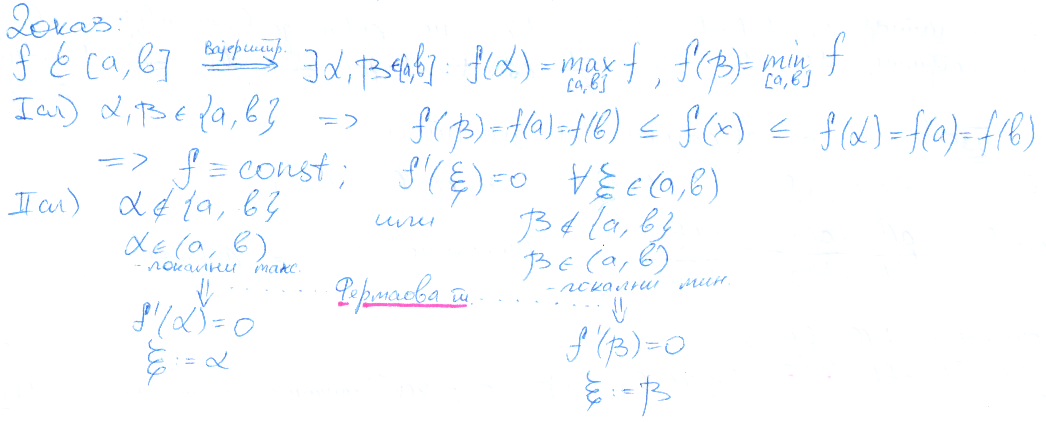 Доказ:
f ∈ C[a,b] ⟹ (Вајерштр.) ∃α,β∈[a,b]: f(α) = max_{[a,b]} f, f(β) = min_{[a,b]} f
I сл) α,β ∈ {a,b} => f(β)=f(a)=f(b) ≤ f(x) ≤ f(α)=f(a)=f(b)
=> f ≡ const; f'(ξ)=0 ∀ξ∈(a,b)
II сл) α∉{a,b} или β∉{a,b}
α∈(a,b) β∈(a,b)
-локални макс. -локални мин.
⇓ Фермаова т. ⇓
f'(α)=0 f'(β)=0
ξ:=α ξ:=β